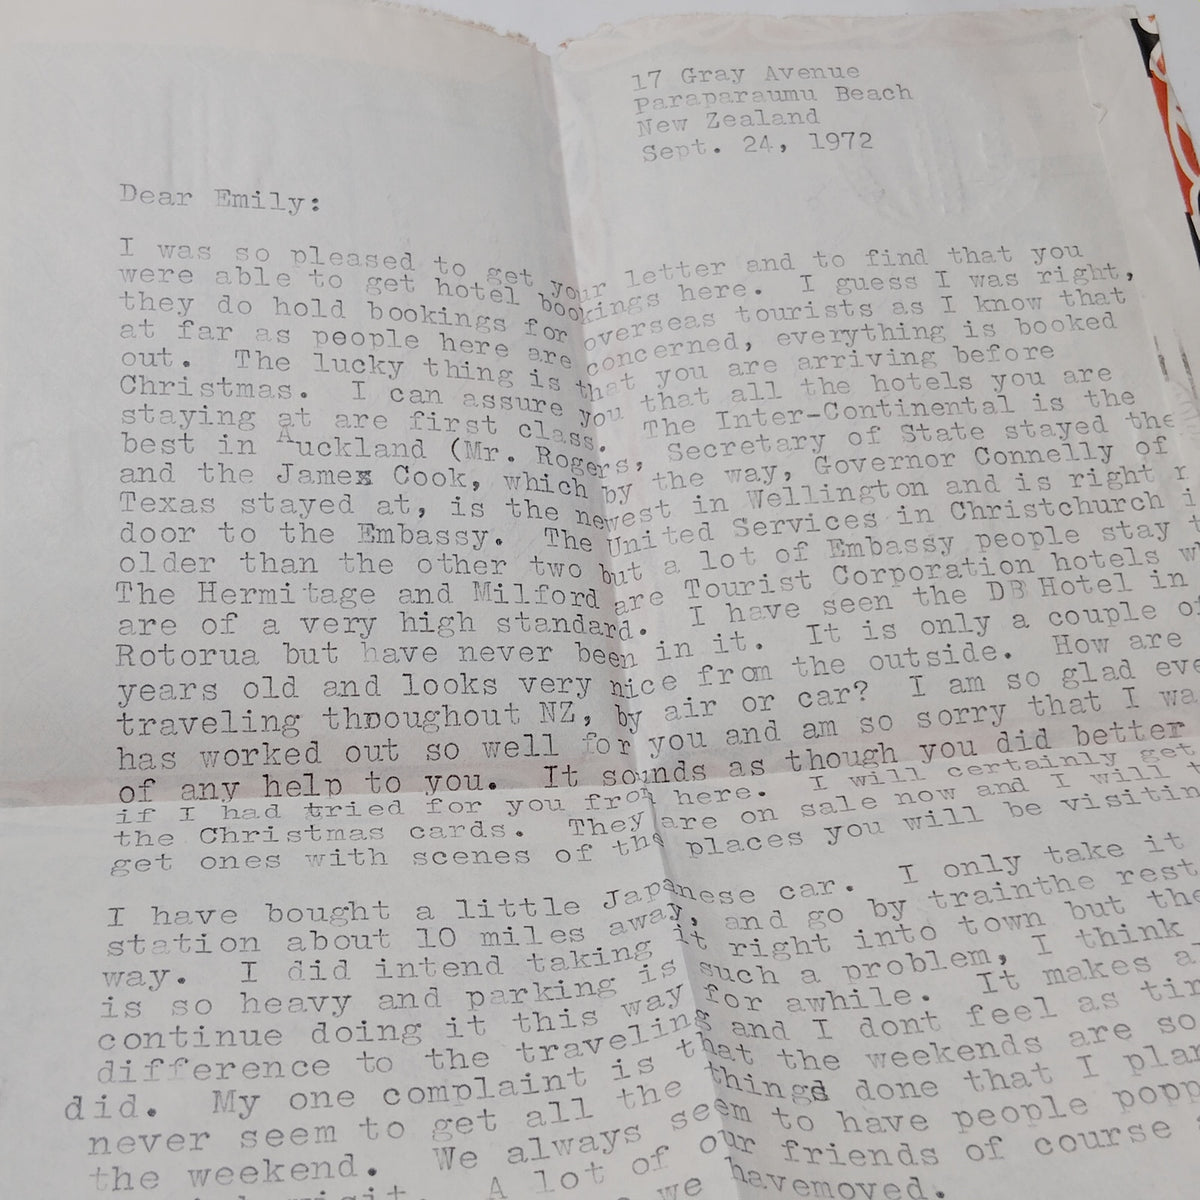 17 Gray Avenue
Paraparaumu Beach
New Zealand
Sept. 24, 1972
Dear Emily:
I was so pleased to get your letter and to find that you
were able to get hotel bookings here. I guess I was right,
they do hold bookings for overseas tourists as I know that
at far as people here are concerned, everything is booked
out. The lucky thing is that you are arriving before
Christmas. I can assure you that all the hotels you are
staying at are first class. The Inter-Continental is the
best in Auckland (Mr. Rogers, Secretary of State stayed the
and the James Cook, which by the way, Governor Connelly of
Texas stayed at, is the newest in Wellington and is right
door to the Embassy. The United Services in Christchurch
older than the other two but a lot of Embassy people stay
The Hermitage and Milford are Tourist Corporation hotels
are of a very high standard. I have seen the DB Hotel in
Rotorua but have never been in it. It is only a couple of
years old and looks very nice from the outside. How are
traveling thpoughout NZ, by air or car? I am so glad
has worked out so well for you and am so sorry that I
of any help to you. It sounds as though you did better
if I had tried for you from here. I will certainly get
the Christmas cards. They are on sale now and I will
get ones with scenes of the places you will be
I have bought a little Japanese car. I only take it
station about 10 miles away, and go by trainthe rest
way. I did intend taking it right into town but
is so heavy and parking is such a problem, I think
continue doing it this way for awhile. It makes a
difference to the traveling and I dont feel as
did. My one complaint is that the weekends are so
never seem to get all the things done that I
the weekend. We always seem to have people
A lot of our friends of course
we havemoved.